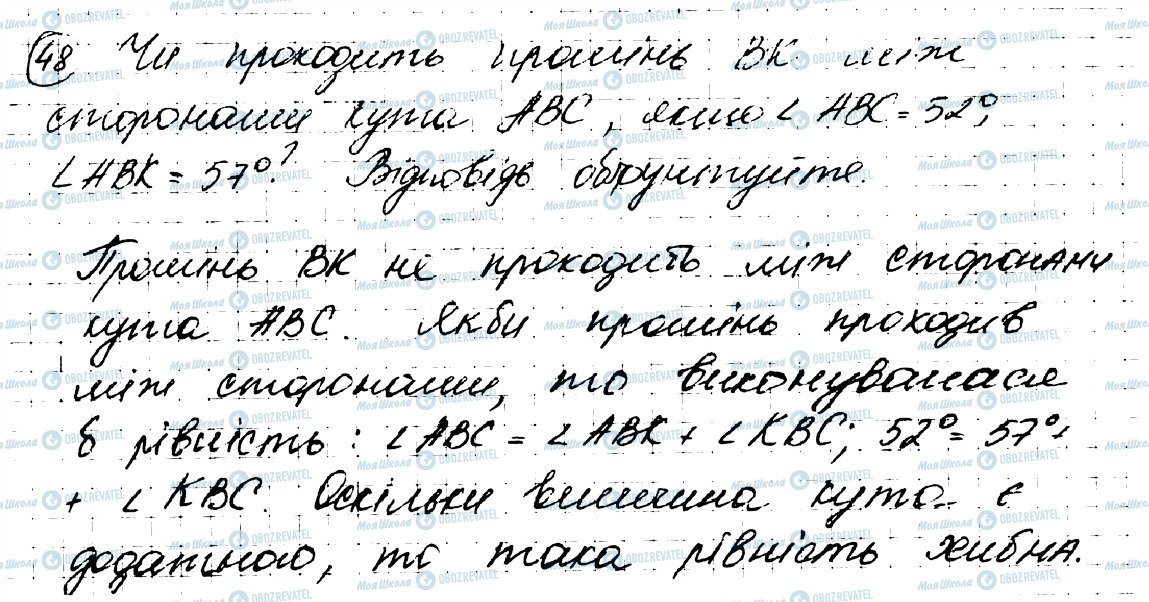 48 Чи проходить промінь BK між
сторонами кута ABC, якщо ∠ABC = 52°,
∠ABK = 57°? Відповідь обґрунтуйте.
Промінь BK не проходить між сторонами
кута ABC. Якби промінь проходив
між сторонами, то виконувалася
б рівність: ∠ABC = ∠ABK + ∠KBC; 52° = 57° +
+ ∠KBC. Оскільки величина кута є
додатною, то така рівність хибна.